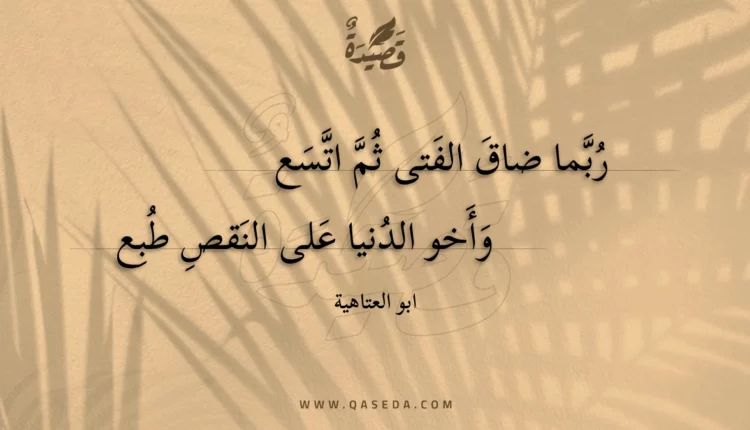 قَصِيدَةٌ
رُبَّما ضاقَ الفَتى ثُمَّ اتَّسَع
وَأَخو الدُنيا عَلى النَقصِ طُبع
ابو العتاهية
WWW.QASEDA.COM